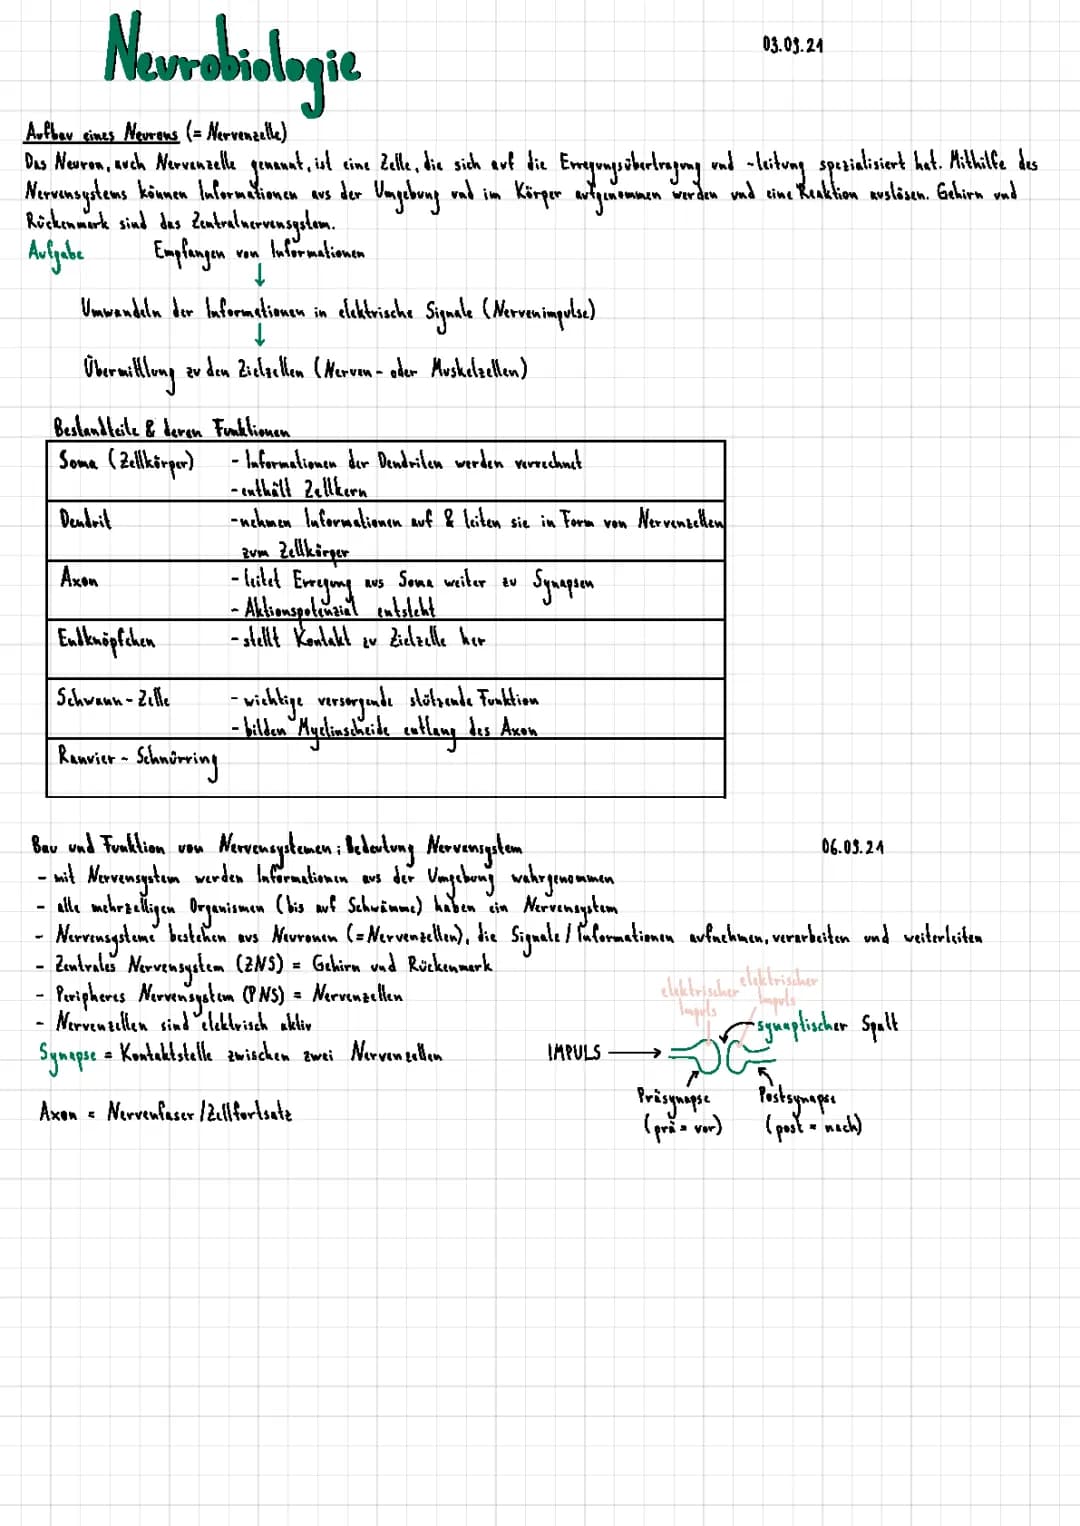 Neurobiologie
03.09.24
Aufbau eines Neurons (= Nervenzelle)
Das Neuron, auch Nervenzelle genannt, ist eine Zelle, die sich auf die Erregungsübertragung und -leitung spezialisiert hat. Mithilfe des
Nervensystems können Informationen aus der Umgebung und im Körper aufgenommen werden und eine Reaktion auslösen. Gehirn und
Rückenmark sind das Zentralnervensystem.
Aufgabe Empfangen von Informationen
↓
Umwandeln der Informationen in elektrische Signale (Nervenimpulse)
↓
Übermittlung zu den Zielzellen (Nerven- oder Muskelzellen)
Bestandteile & deren Funktionen
Soma (Zellkörper) - Informationen der Dendriten werden verrechnet
- enthält Zellkern
Dendrit - nehmen Informationen auf & leiten sie in Form von Nervenzellen
zum Zellkörper
Axon - leitet Erregung aus Soma weiter zu Synapsen
- Aktionspotenzial entsteht
Endknöpfchen - stellt Kontakt zu Zielzelle her
Schwann-Zelle - wichtige versorgende stützende Funktion
- bilden Myelinscheide entlang des Axon
Ranvier-Schnürring
Bau und Funktion von Nervensystemen; Bedeutung Nervensystem
06.09.24
- mit Nervensystem werden Informationen aus der Umgebung wahrgenommen
- alle mehrzelligen Organismen (bis auf Schwämme) haben ein Nervensystem
- Nervensysteme bestehen aus Neuronen (=Nervenzellen), die Signale/Informationen aufnehmen, verarbeiten und weiterleiten
- Zentrales Nervensystem (ZNS) = Gehirn und Rückenmark
- Peripheres Nervensystem (PNS) = Nervenzellen
- Nervenzellen sind elektrisch aktiv
Synapse = Kontaktstelle zwischen zwei Nervenzellen
Axon = Nervenfaser/Zellfortsatz
elektrischer Impuls
elektrischer Impuls
synaptischer Spalt
IMPULS →
Präsynapse
(prä = vor)
Postsynapse
(post = nach)